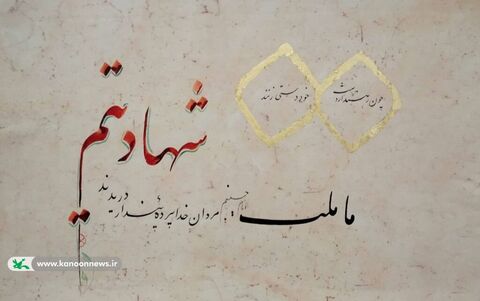 چون رهند از دست
خود دستی زنند
شهادتیم
ما ملت
امام حسینیم
مردان خدا پرده پندار دریدند
www.kanoonnews.ir